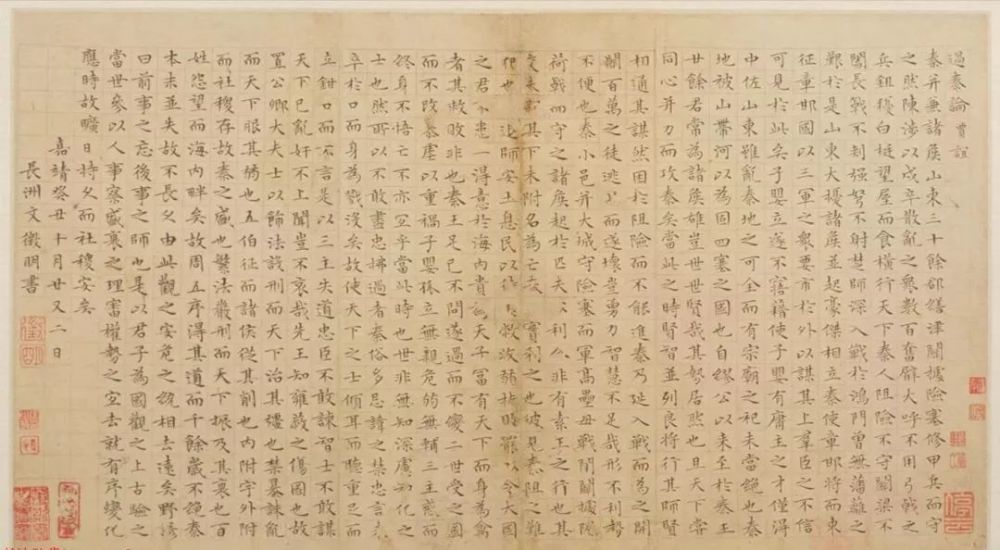 過秦論 賈誼
秦并兼諸侯山東三十餘郡繕津關據險塞修甲兵而守
之然陳涉以戍卒散亂之衆數百奮臂大呼不用弓戟之
兵鉏櫌白梃望屋而食橫行天下秦人阻險不守關梁不
闔長戟不刺强弩不射楚師深入戰於鴻門曾無藩籬之
艱於是山東大擾諸侯並起豪傑相立秦使章邯將而東
征章邯因以三軍之衆要市於外以謀其上群臣之不信
可見於此矣子嬰立遂不寤藉使子嬰有庸主之才僅得
中佐山東雖亂秦地之可全而有宗廟之祀未當絕也秦
地被山帶河以為固四塞之國也自繆公以來至於秦王
廿餘君常為諸侯雄豈世世賢哉其勢居然也且天下嘗
同心并力而攻秦矣當此之時賢智並列良將行其師賢
相通其謀然困於阻險而不能進秦乃延入戰而為之開
關百萬之徒逃北而遂壞豈勇力智慧不足哉形不利勢
不便也秦小邑并大城守險塞而軍高壘毋戰閉關據阨
荷戟而守之諸侯起於匹夫利非有素王之行也其
交未親其下未附名為亡實利之也彼見秦阻之難
犯也退師安土息民以收弱扶罷以令大國
之君不患得意於海內貴為天子富有天下而身為禽
者其救敗非也秦王足己不問遂過而不變二世受之因
而不改暴虐以重禍子嬰孤立無親危弱無輔三主惑而
終身不悟亡不亦宜乎當此時也世非無知深慮知化之
士也然所以不敢盡忠拂過者秦俗多忌諱之禁忠言未
卒於口而身為戮沒矣故使天下之士傾耳而聽重足而
立鉗口而不言是以三主失道忠臣不敢諫智士不敢謀
天下已亂奸不上聞豈不哀哉先王知雍蔽之傷國也故
置公卿大夫士以飾法設刑而天下治其彊也禁暴誅亂
而天下服其弱也五伯征而諸侯從其削也內附守外附
而社稷存故秦之盛也繁法嚴刑而天下振及其衰也百
姓怨望而海內畔矣故周五序得其道而千餘歲不絕秦
本末並失故不長久由此觀之安危之統相去遠矣野諺
曰前事之忘後事之師也是以君子為國觀之上古驗之
當世參以人事察盛衰之理審權勢之宜去就有序變化
應時故曠日持久而社稷安矣
嘉靖癸丑十月廿又二日
長洲文徵明書